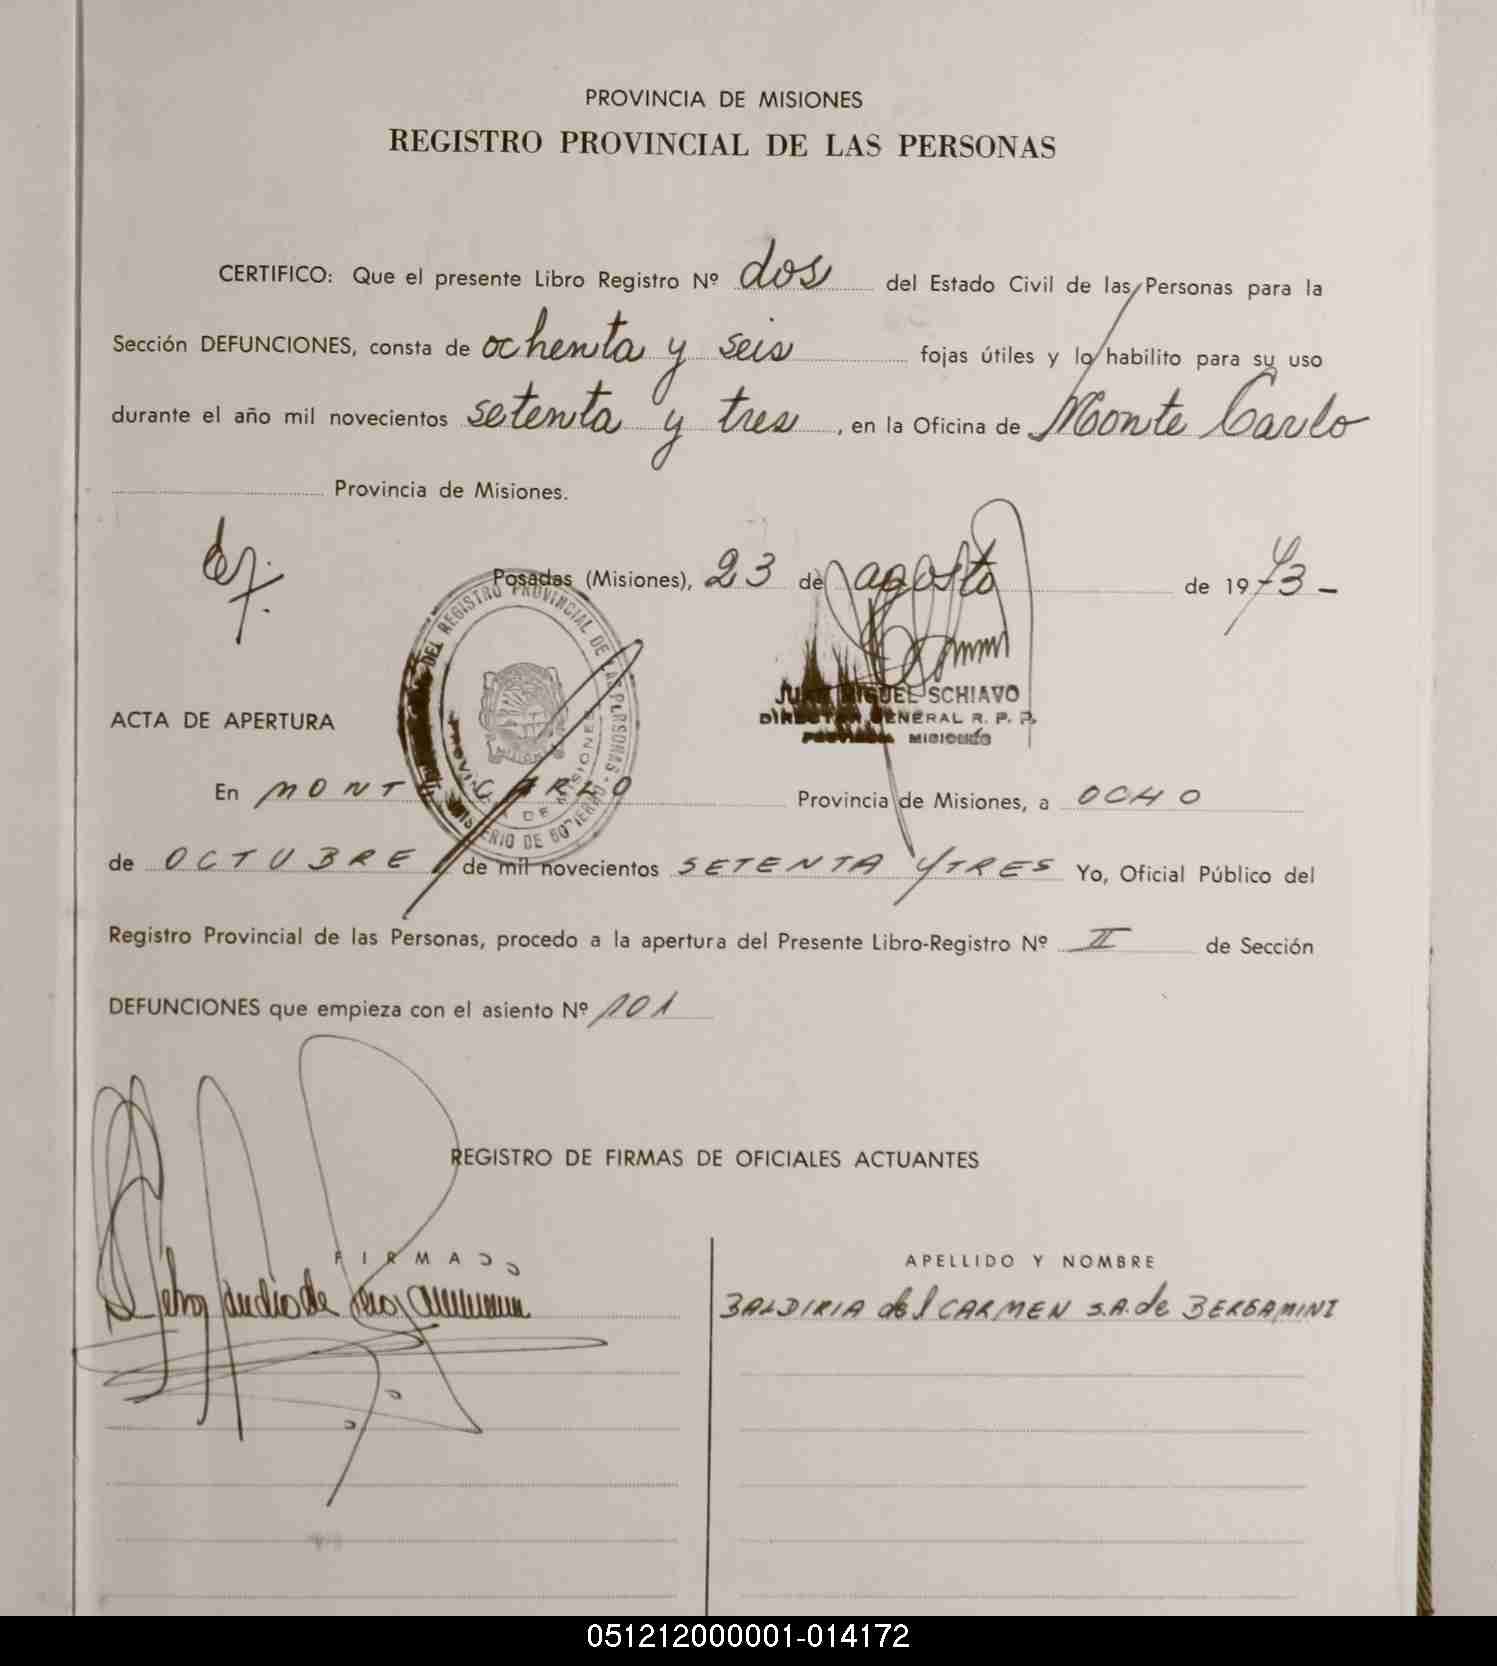 PROVINCIA DE MISIONES
REGISTRO PROVINCIAL DE LAS PERSONAS
CERTIFICO: Que el presente Libro Registro Nº dos del Estado Civil de las Personas para la
Sección DEFUNCIONES, consta de ochenta y seis fojas útiles y lo habilito para su uso
durante el año mil novecientos setenta y tres, en la Oficina de Monte Carlo
Provincia de Misiones.
Posadas (Misiones), 23 de agosto de 1973-
DEL REGISTRO PROVINCIAL DE LAS PERSONAS
MINISTERIO DE GOBIERNO
PROVINCIA DE MISIONES
JUAN MIGUEL SCHIAVO
DIRECTOR GENERAL R. P. P.
PROVINCIA MISIONES
ACTA DE APERTURA
En MONTE CARLO Provincia de Misiones, a OCHO
de OCTUBRE de mil novecientos SETENTA Y TRES Yo, Oficial Público del
Registro Provincial de las Personas, procedo a la apertura del Presente Libro-Registro Nº II de Sección
DEFUNCIONES que empieza con el asiento Nº 101
REGISTRO DE FIRMAS DE OFICIALES ACTUANTES
FIRMA
APELLIDO Y NOMBRE
BALDIRIA del CARMEN S.A. de BERGAMINI
051212000001-014172